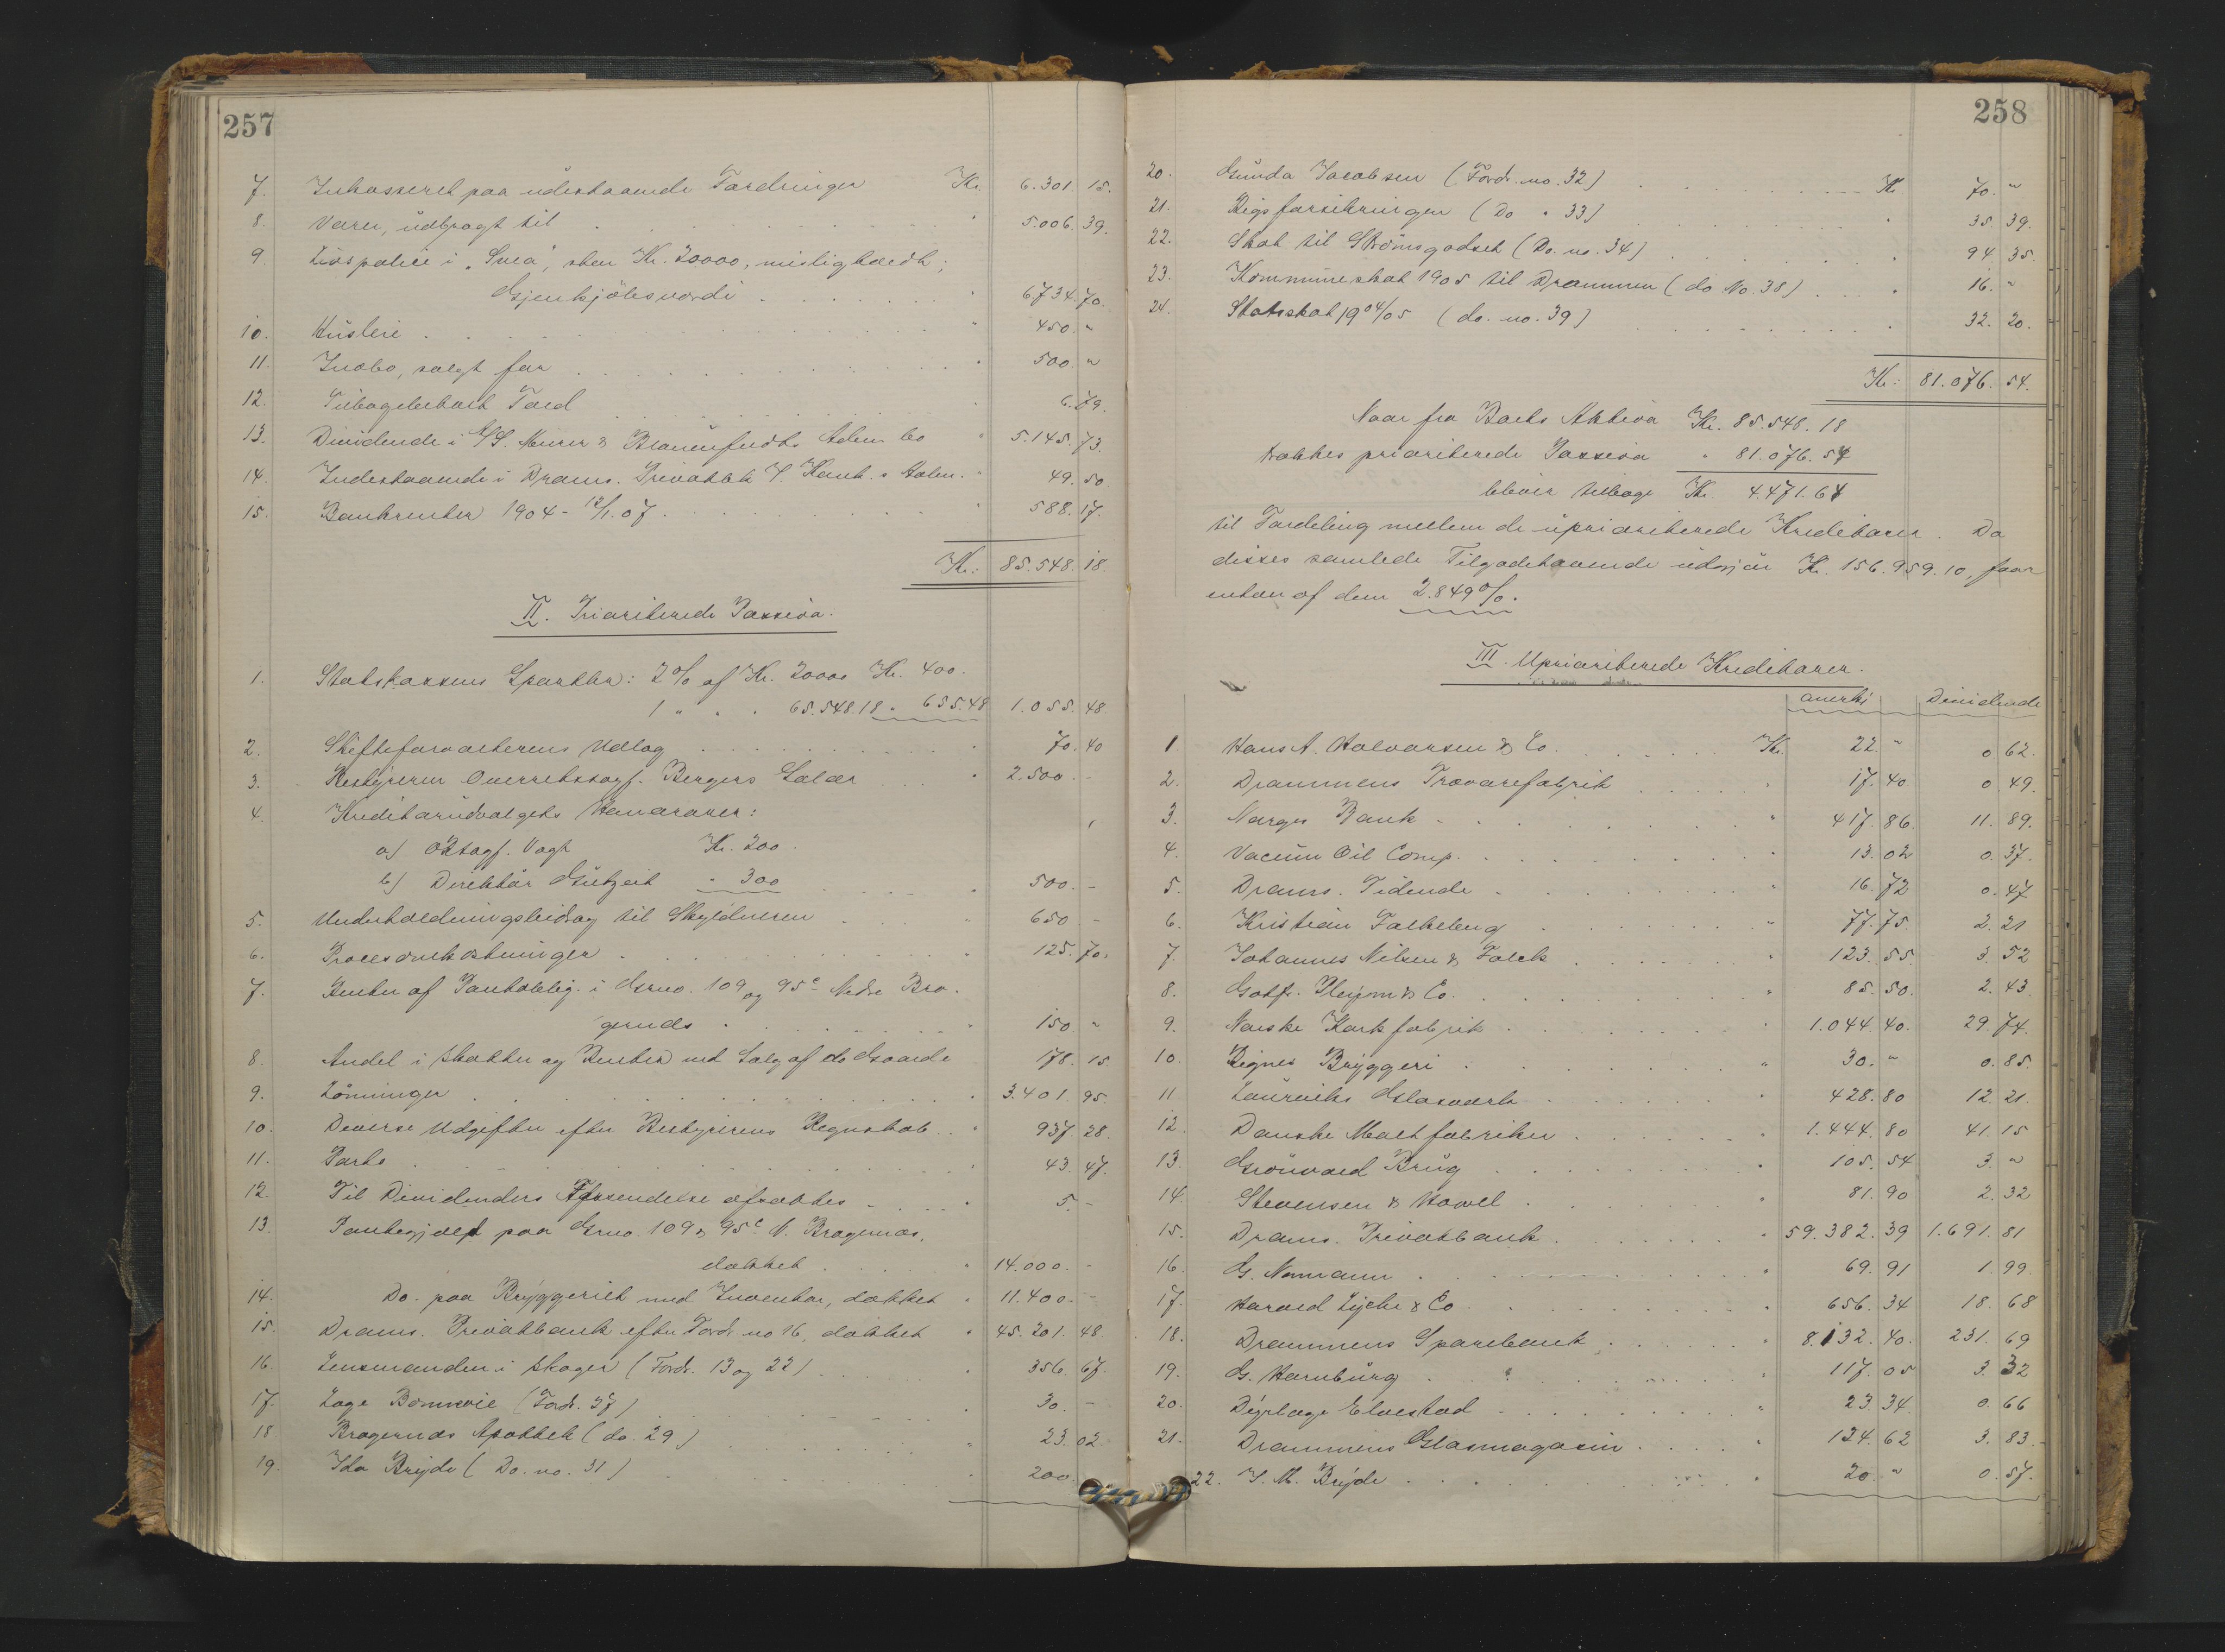 257
7. Inkasseret paa udestaaende Fordringer Kr. 6.301.15.
8. Varer, udbragt til " 5.006.39.
9. Livspolice i „Svea", stor Kr. 20000, misligholdt;
Gjenkjöbsværdi " 6734.70.
10. Husleie " 450. "
11. Indbo, solgt for " 500. "
12. Tilbagebetalt Told " 6.79.
13. Dividende i A/S. Meurer & Blauenfeldts bo " 5.145.73.
14. Indestaaende i Drams. Privatbk " 49.50
15. Bankrenter 1904 - 12/1.07. " 588.17.
Kr: 85.548.18.
II. Prioriterede Passiva.
1. Statskassens Sportler: 2% af Kr. 20000 Kr. 400.
1 " " " 65.548.18 " 655.48 1.055.48
2. Skifteforvalterens Udlæg " 70.40
3. Bestyreren Overretssagf. Bergers Salær " 2.500. -
4. Kreditorudvalgets Honorarer:
a) ORsagf. Vogt Kr. 200.
b) Direktör Gutzeit " 300 " 500. -
5. Underholdningsbidrag til Skyldneren " 650 -
6. Procesomkostninger " 125.70.
7. Renter af Pantobblig. i Grno. 109 og 95c Nedre Bra-
gernæs " 150. "
8. Andel i Skatter og Renter ved Salg af do Gaarde 178.15
9. Lönninger " 3.401.95.
10. Diverse Udgifter efter Bestyrerens Regnskab " 937.28.
11. Porto " 43.47.
12. Til Dividenders Afsendelse afsættes " 5. -
13. Pantegjæld paa Grno. 109 & 95c N. Bragernæs,
dækket " 14.000. -
14. Do. paa Bryggeriet med Inventar, dækket " 11.400. -
15. Drams. Privatbank efter Fordr. no 16, dækket " 45.201.48
16. Lensmanden i Skoger (Fordr. 13 og 22) " 356.67.
17. Læge (Fordr. 37) " 30. -
18 Bragernæs Apothek (do. 29) " 23.02
19. Ida Bryde (Do. no. 31) " 200.
258
20. Gunda Jacobsen (Fordr. no. 32) Kr 70. "
21. Rigsforsikringen (Do " 33) " 35.39.
22. Skat til Strömsgodset (Do. no. 34) " 94.35.
23. Kommuneskat 1905 til Drammen (do No. 38) " 16. "
24. Statsskat 1904/05 (do. no. 39) " 32.20.
Kr: 81.076.54.
Naar fra Boets Aktiva Kr. 85.548.18
trækkes prioriterede Passiva " 81.076.54
bliver tilbage Kr. 4.471.64
til Fordeling mellem de uprioriterede Kreditorer. Da
disses samlede Tilgodehavende udgjör Kr. 156.959.10, faar
enhver af dem 2.849%.
III. Uprioriterede Kreditorer.
anerkj Dividende
1 Hans A. Halvorsen & Co. Kr. 22. " 0 62.
2. Drammens Trævarefabrik " 17.40 0.49.
3. Norges Bank " 417.86 11.89.
4. Vacuum Oil Comp. " 13.02 0.37.
5. Drams. Tidende " 16.72 0.47
6. Kristian Falkeberg " 77.75. 2.21
7. Johannes Nilsen & Falck " 123.55. 3.52
8. Gottfr. Pleym & Co. " 85.50. 2.43.
9. Norske Korkfabrik " 1.044.40. 29.74.
10. Rignes Bryggeri " 30. " 0.85.
11 Laurviks Glasværk " 428.80 12.21.
12. Danske Maltfabriker " 1.444.80 41.15
13. Grönvold Brug " 105.54 3. "
14. Stevensen & Howel " 81.90 2.32
15. Drams. Privatbank " 59.382.39 1.691.81
16. G. Normann " 69.91 1.99.
17. Harald Lyche & Co. " 656.34 18.68
18. Drammens Sparebank " 8.132.40. 231.69
19. G. Hornburg " 117.05 3.32
20. Dyrlæge Elvestad " 23.34 0.66
21. Drammens Glasmagasin " 134.62 3.83.
22. J. M. Bryde " 20. " 0.57.